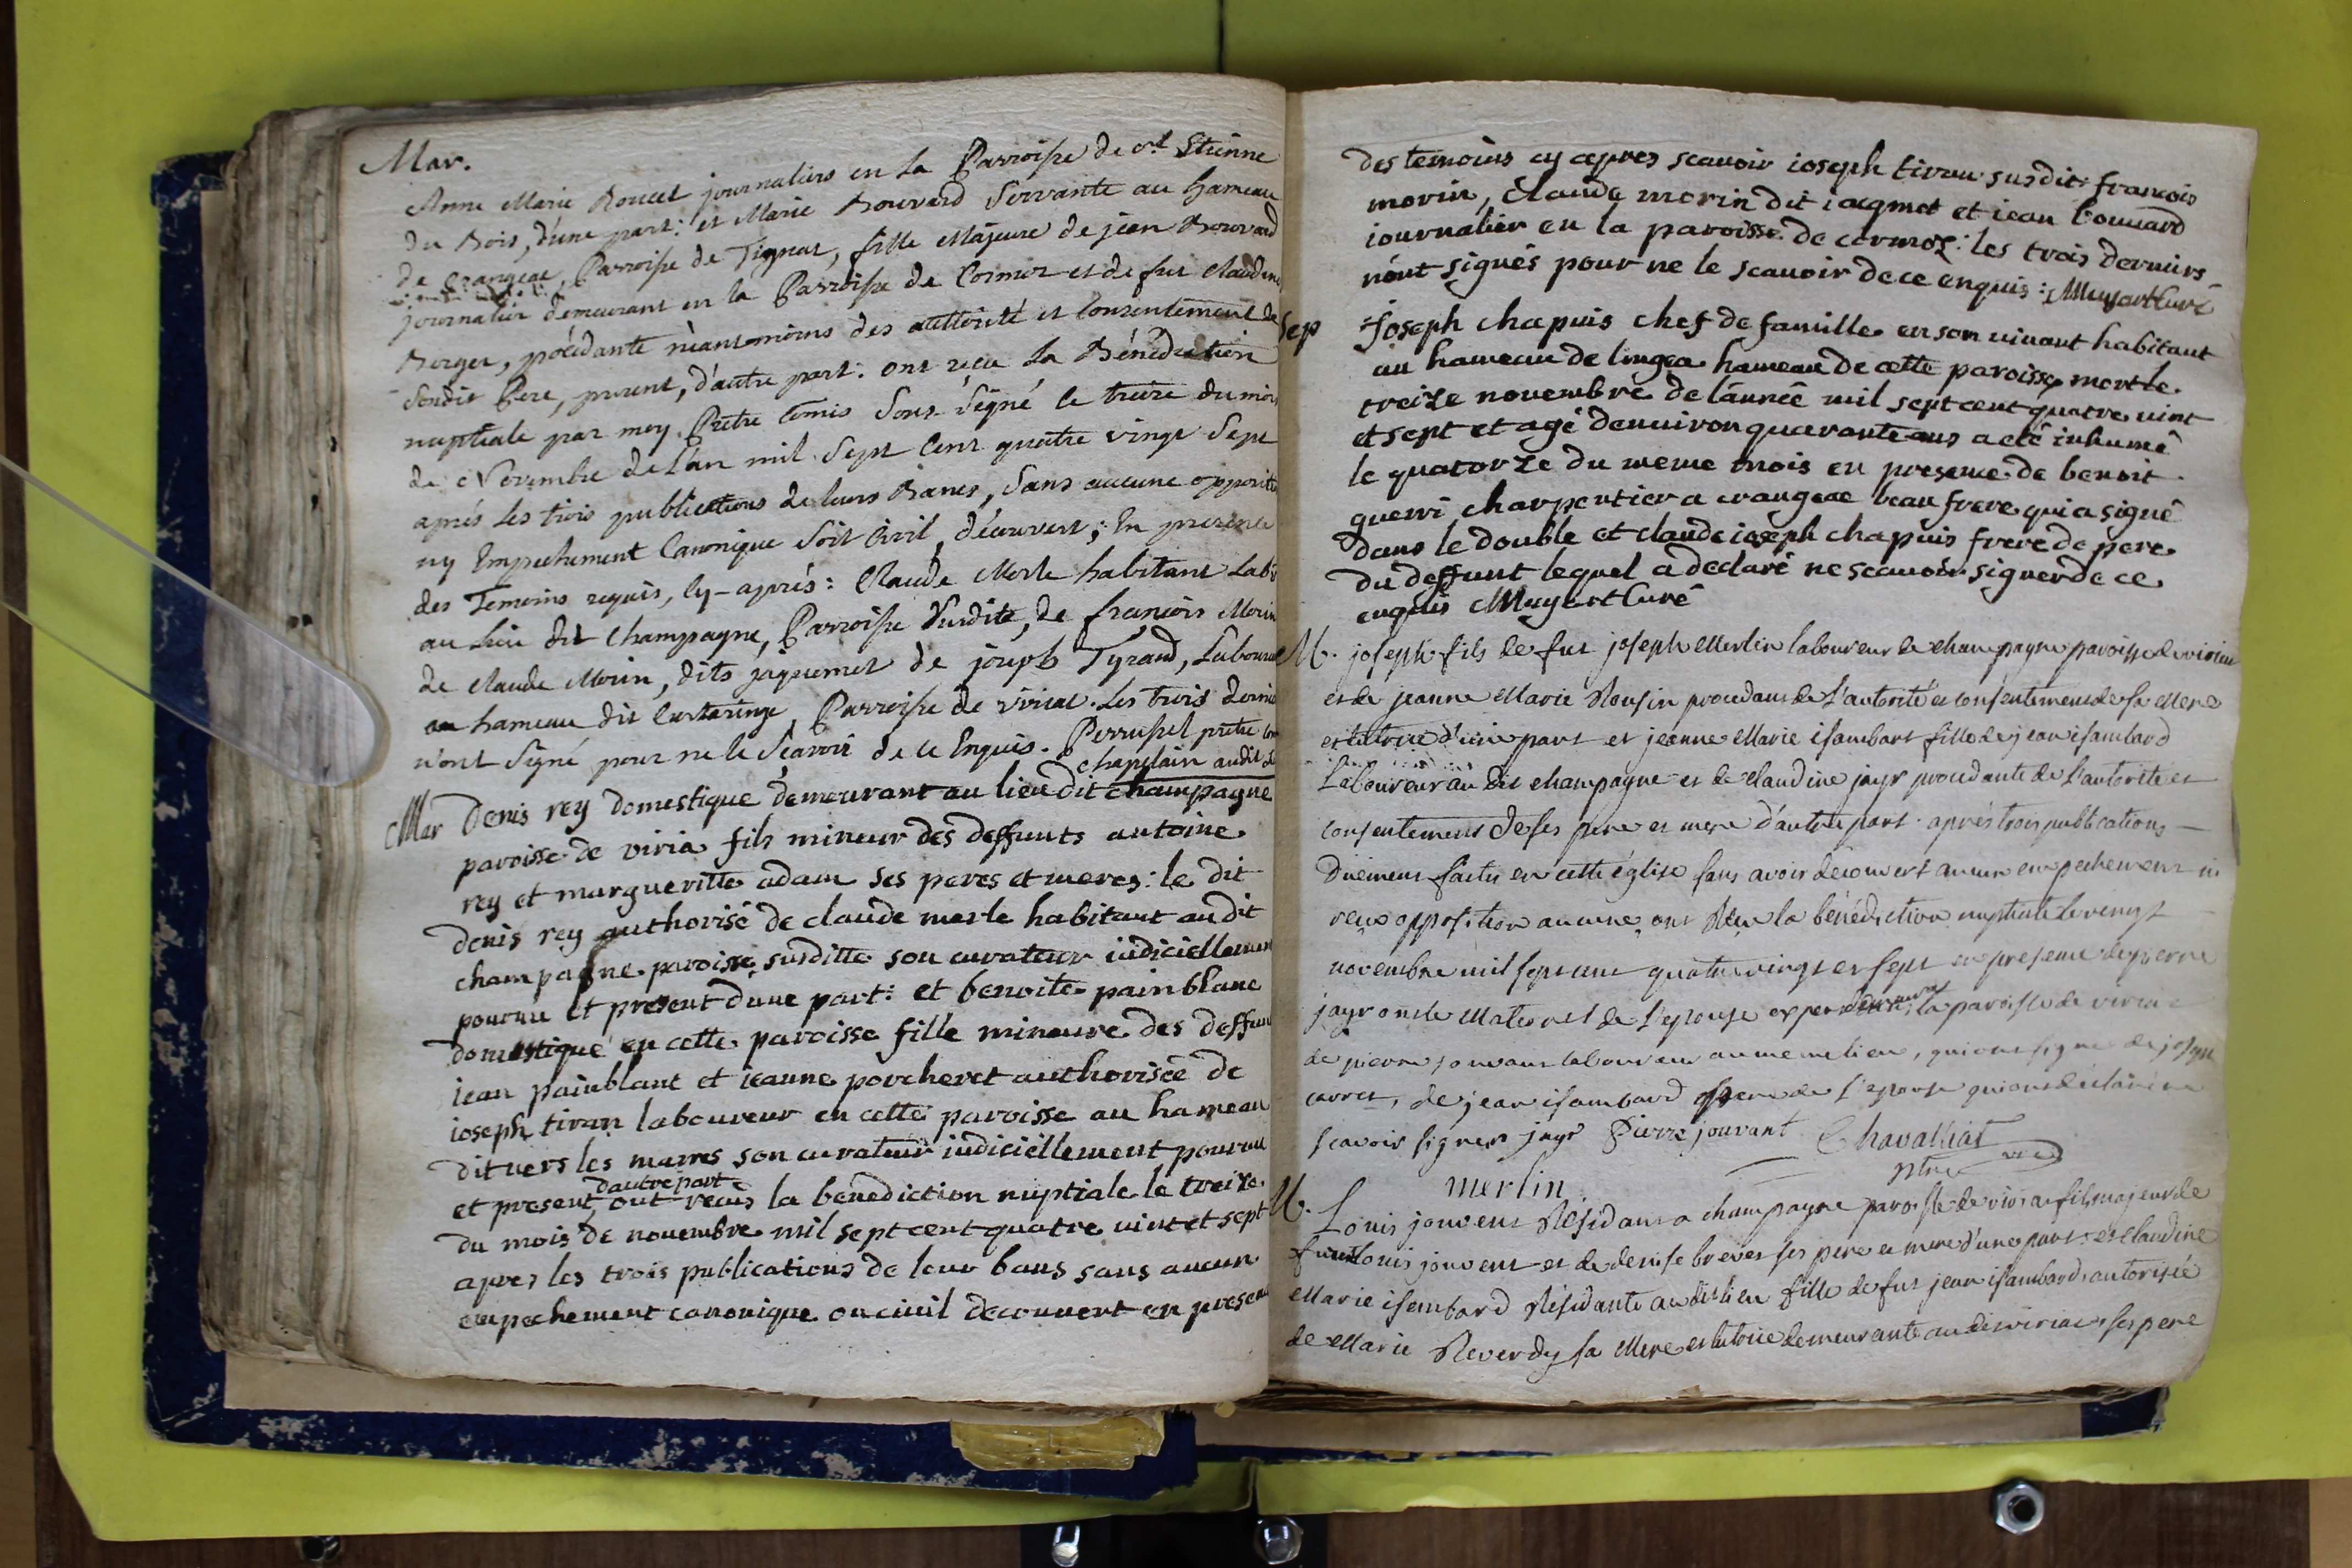 Mar.
Anne Marie Roucet journaliers en la Parroisse de st Etienne
du Bois, d'une part: et Marie Bouvard Servante au hameau
de Crangeac, Parroisse de Tignat, fille Majeure de jean Bouvard
journalier demeurant en la Parroisse de Cormoz et de fue Claudine
Berger, procédante néansmoins des authorité et Consentement de
Sondit Pere, present, d'autre part: ont reçu la Bénédiction
nuptiale par moy Prêtre Comis Sous-Signé le treize du mois
de Novembre de L'an mil Sept Cent quatre vingt Sept
après les trois publications de leurs Bancs, Sans aucune opposition
ny Empechement Canonique Soit Civil, découvert; En presence
des Temoins requis, Cy-après: Claude Merle habitant Lab
au Lieu dit Champagne, Parroisse Susdite, de françois Morin
de Claude Morin, dits jaquemet de joseph Tyrand, Laboureur
au hameau dit , Parroisse de viriat. Les trois derniers
n'ont Signé pour ne le Sçavoir de ce Enquis. Perrussel prêtre
chapelain audit
Mar Denis rey domestique demeurant au lieu dit champagne
paroisse de viria fils mineur des deffunts antoine
rey et margueritte adam ses peres et meres: le dit
denis rey authorisé de claude merle habitant au dit
champagne paroisse susditte son curateur iudiciellement
pourvu et present dune part: et benoite painblanc
domestique en cette paroisse fille mineure des deffun
jean painblant et ieanne porcheret authorisée de
ioseph tiran laboureur en cette paroisse au hameau
dit vers les mares son curateur iudiciellement pourvu
et present dautre part ont recus la benediction nuptiale le treize
du mois de novembre mil sept cent quatre vint et sept
apres les trois publications de leur bans sans aucun
empechement canonique ou civil decouvert en presen
des temoins cy apres scauoir ioseph tiran susdit: francois
morin, claude morin dit iacqmet et iean bouuard
iournalier en la paroisse de cormoz: les trois derniers
n'ont signés pour ne le scauoir de ce enquis: Muyart Curé
Sep Joseph chapuis chef de famille en son viuant habitant
au hameau de lingea hameau de cette paroisse mort le
treize novembre de l'année mil sept cent quatre vint
et sept et agé denuiron quarante ans a eté inhumé
le quatorze du meme mois en presence de benoit
guerri charpentier a crangeac beau frere qui a signé
dans le double et claude ioseph chapuis frere de pere
du deffunt lequel a declaré ne scauoir signer de ce
enquis Muyart Curé
M. joseph fils de fut joseph Merlin laboureur de champagne paroisse de viriat
et de jeanne Marie Rousin procedans de l'autorité et consentement de sa Mere
et tutrice d'une part et jeanne Marie isambart fille de jean isambard
Laboureur au dit champagne et de Claudine jayr procedante de l'autorité et
consentement de ses pere et mere d'autre part. après trois publications
Duement faites en cette église sans avoir découvert aucun empechement ni
reçu opposition aucune, ont Reçu la bénédiction nuptiale le vingt
novembre mil sept cent quatre vingt et sept en presence de pierre
jayr oncle Maternel de l'epouse la paroisse de viriat
de pierre jouvant laboureur au meme lieu, qui ont signé de joseph
carret, de jean isambard frere de l'epouse qui ont déclaré ne
scavoir signer jayr Pierre jouvant Chavalliat
ptre vic
merlin
M. Louis jouvent Résidant a champagne paroisse de viriat fils majeur de
fut Louis jouvent et de denise brevet ses pere et mere d'une part et Claudine
Marie isembard Résidante au dit lieu fille de fut jean isambard, autorisée
de Marie Reverdy sa Mere et tutrice demeurante au dit viriat, ses pere